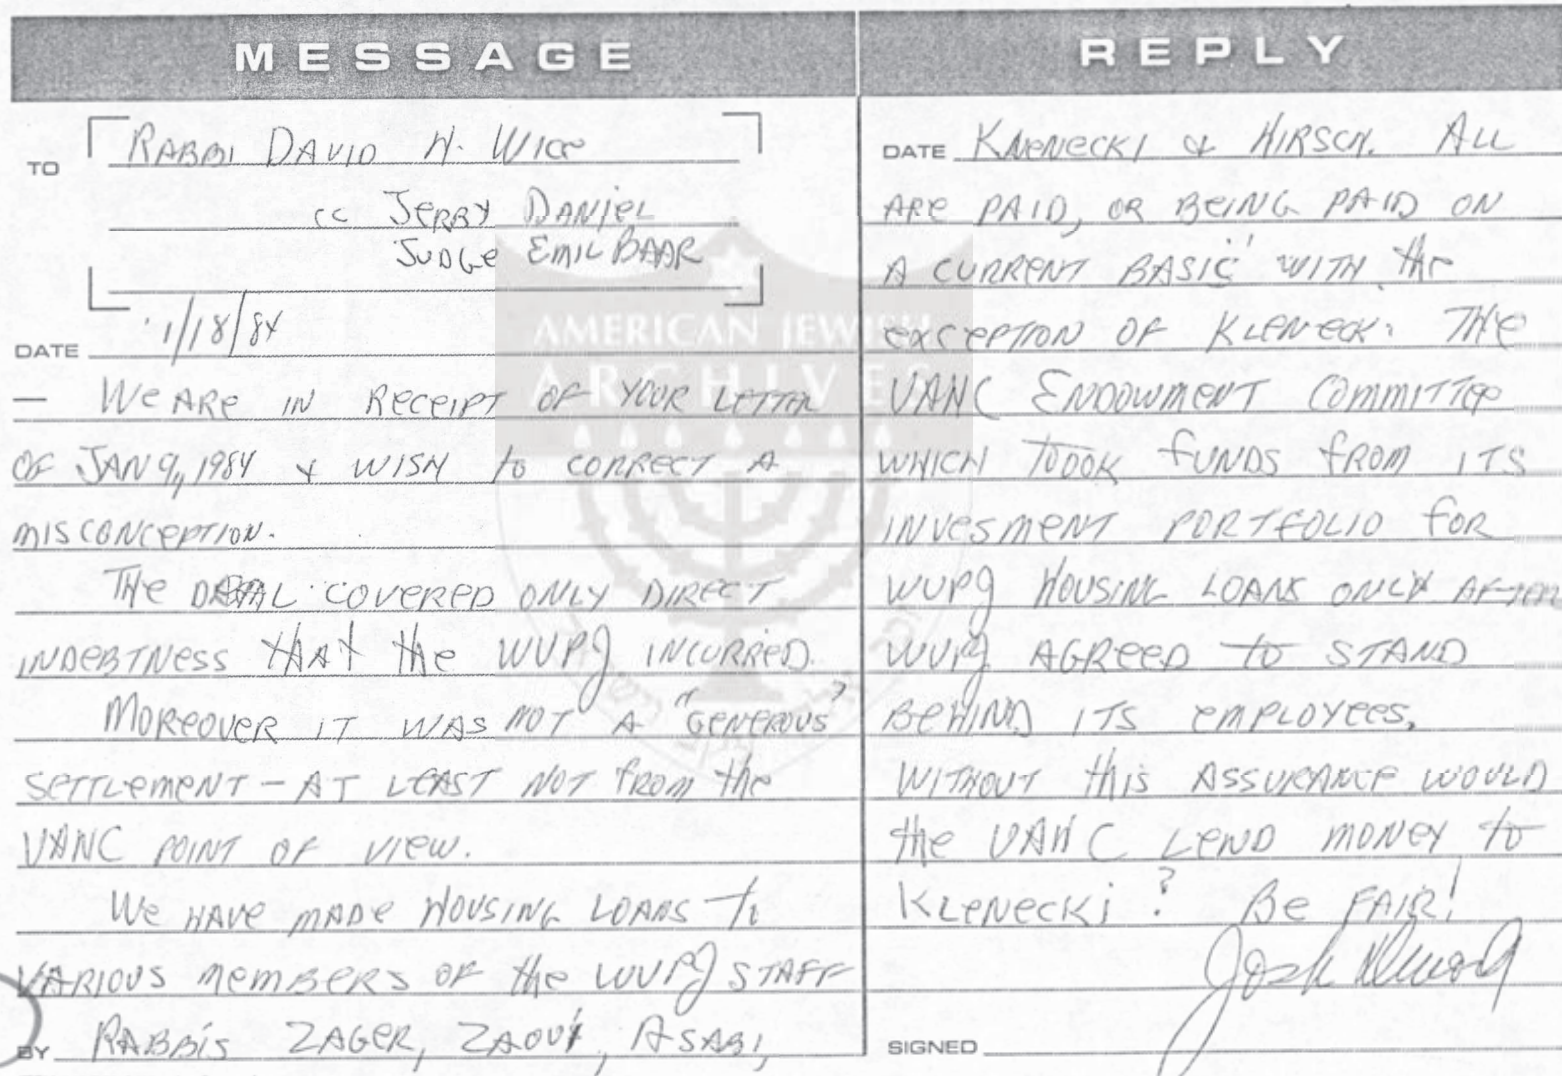 MESSAGE
TO RABBI DAVID H. WICE
cc JERRY DANIEL
JUDGE EMIL BAAR
DATE 1/18/84
— WE ARE IN RECEIPT OF YOUR LETTER
OF JAN 9, 1984 & WISH to CORRECT A
MISCONCEPTION.
THE COVERED ONLY DIRECT
INDEBTNESS THAT the WUPJ INCURRED.
MOREOVER IT WAS NOT A "GENEROUS"
SETTLEMENT - AT LEAST NOT FROM the
UANC POINT OF VIEW.
WE HAVE MADE HOUSING LOANS to
VARIOUS MEMBERS OF the WUPJ STAFF
BY RABBIS ZAGER, ZAOUI, ASABI,
REPLY
DATE KLENECKI & HIRSCH. ALL
ARE PAID, OR BEING PAID ON
A CURRENT BASIC WITH the
EXCEPTION OF KLENECK. THE
UANC ENDOWMENT COMMITTEE
WHICH TOOK FUNDS FROM ITS
INVESMENT PORTFOLIO FOR
WUPJ HOUSING LOANS ONLY AFTER
WUPJ AGREED to STAND
BEHIND ITS EMPLOYEES.
WITHOUT this ASSURANCE WOULD
the UANC LEND MONEY to
KLENECKI? BE FAIR!
SIGNED
AMERICAN JEWISH
ARCHIVES